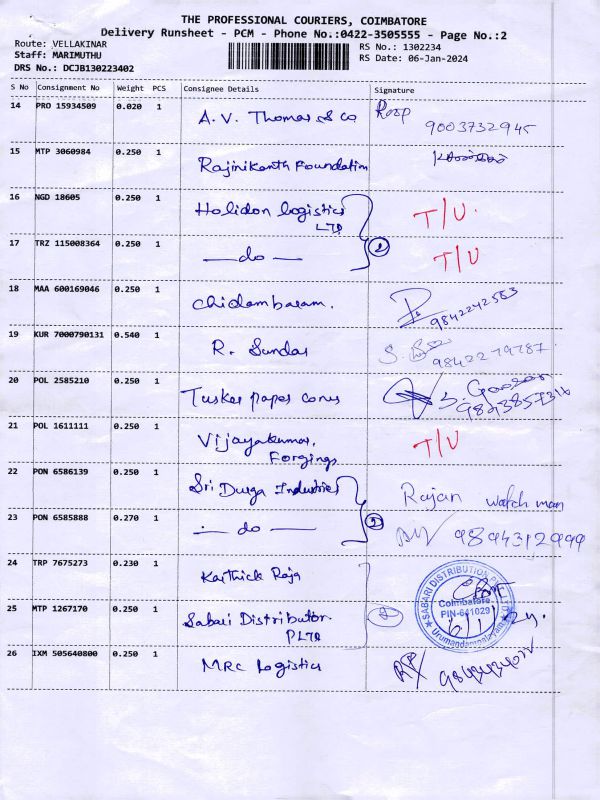 THE PROFESSIONAL COURIERS, COIMBATORE
Delivery Runsheet - PCM - Phone No.:0422-3505555 - Page No.:2
Route: VELLAKINAR
Staff: MARIMUTHU
DRS No.: DCJB130223402
RS No.: 1302234
RS Date: 06-Jan-2024
S No Consignment No Weight PCS Consignee Details Signature
14 PRO 15934509 0.020 1 A. V. Thomas & Co 9003732945
15 MTP 3060984 0.250 1 Rajinikanth Foundation
16 NGD 18605 0.250 1 Holidon logistics LTD T/U.
17 TRZ 115008364 0.250 1 — do — T/U
18 MAA 600169046 0.250 1 Chidambaram. 9842242583
19 KUR 7000790131 0.540 1 R. Sundar
20 POL 2585210 0.250 1 Tusker paper cones
21 POL 1611111 0.250 1 Vijayakumar, Forgings T/U
22 PON 6586139 0.250 1 Sri Durga Industries Rajan watch man
23 PON 6585888 0.270 1 — do — 9894312999
24 TRP 7675273 0.230 1 Karthick Raja
25 MTP 1267170 0.250 1 Sabari Distributor PLTD
SABARI DISTRIBUTION
Coimbatore
PIN-641029
6/1/24.
26 IXM 505640800 0.250 1 MRC Logistics